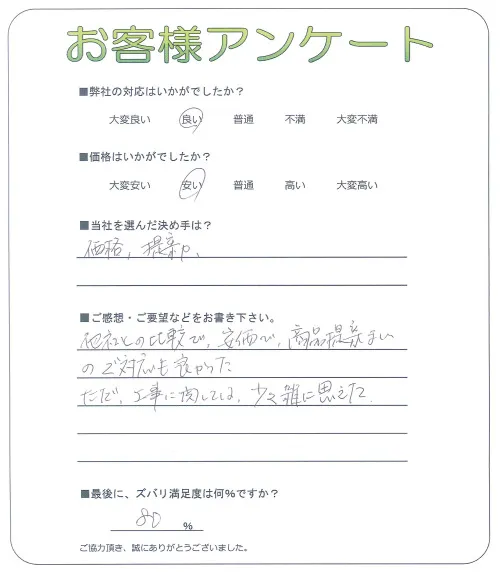 お客様アンケート
■弊社の対応はいかがでしたか？
大変良い 良い 普通 不満 大変不満
■価格はいかがでしたか？
大変安い 安い 普通 高い 大変高い
■当社を選んだ決め手は？
価格，提案力、
■ご感想・ご要望などをお書き下さい。
他社との比較で，安価で，商品提案まい
のご対応も良かった
ただ，工事に関しては，少々雑に思えた．
■最後に、ズバリ満足度は何％ですか？
80 ％
ご協力頂き、誠にありがとうございました。